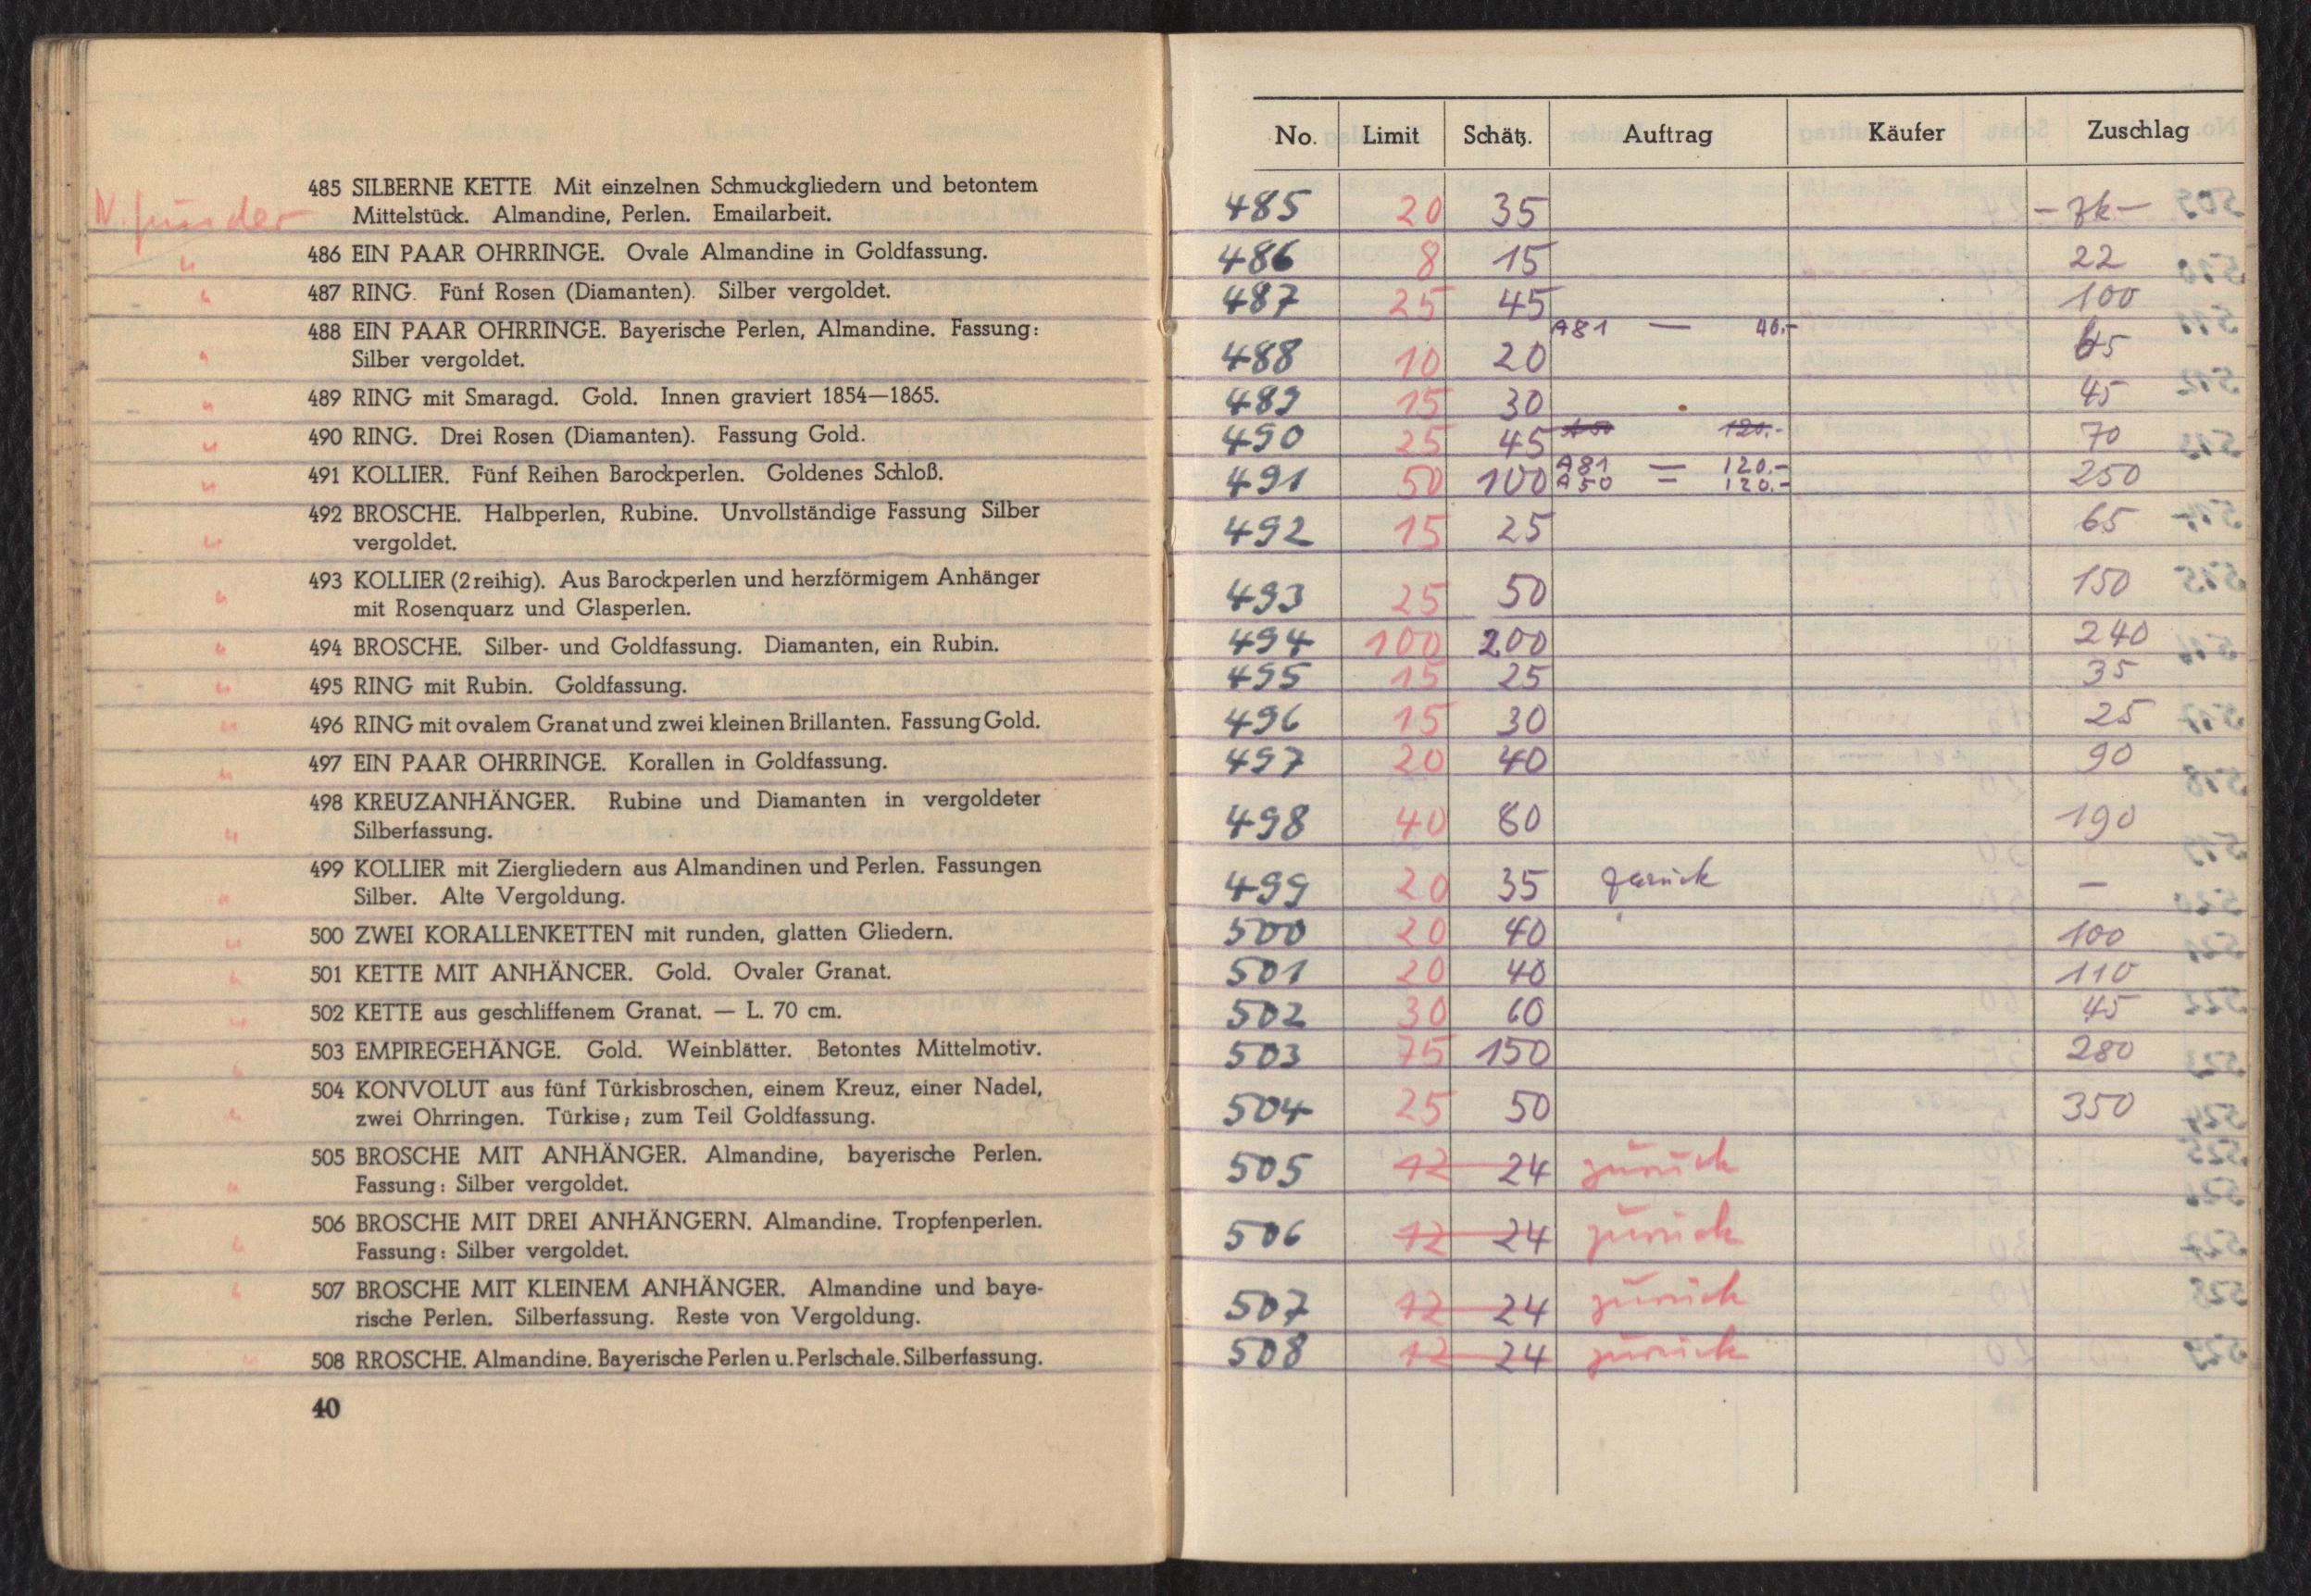 485 SILBERNE KETTE. Mit einzelnen Schmuckgliedern und betontem
Mittelstück. Almandine, Perlen. Emailarbeit.
486 EIN PAAR OHRRINGE. Ovale Almandine in Goldfassung.
487 RING. Fünf Rosen (Diamanten). Silber vergoldet.
488 EIN PAAR OHRRINGE. Bayerische Perlen, Almandine. Fassung:
Silber vergoldet.
489 RING mit Smaragd. Gold. Innen graviert 1854—1865.
490 RING. Drei Rosen (Diamanten). Fassung Gold.
491 KOLLIER. Fünf Reihen Barockperlen. Goldenes Schloß.
492 BROSCHE. Halbperlen, Rubine. Unvollständige Fassung Silber
vergoldet.
493 KOLLIER (2reihig). Aus Barockperlen und herzförmigem Anhänger
mit Rosenquarz und Glasperlen.
494 BROSCHE. Silber- und Goldfassung. Diamanten, ein Rubin.
495 RING mit Rubin. Goldfassung.
496 RING mit ovalem Granat und zwei kleinen Brillanten. Fassung Gold.
497 EIN PAAR OHRRINGE. Korallen in Goldfassung.
498 KREUZANHÄNGER. Rubine und Diamanten in vergoldeter
Silberfassung.
499 KOLLIER mit Ziergliedern aus Almandinen und Perlen. Fassungen
Silber. Alte Vergoldung.
500 ZWEI KORALLENKETTEN mit runden, glatten Gliedern.
501 KETTE MIT ANHÄNCER. Gold. Ovaler Granat.
502 KETTE aus geschliffenem Granat. — L. 70 cm.
503 EMPIREGEHÄNGE. Gold. Weinblätter. Betontes Mittelmotiv.
504 KONVOLUT aus fünf Türkisbroschen, einem Kreuz, einer Nadel,
zwei Ohrringen. Türkise; zum Teil Goldfassung.
505 BROSCHE MIT ANHÄNGER. Almandine, bayerische Perlen.
Fassung: Silber vergoldet.
506 BROSCHE MIT DREI ANHÄNGERN. Almandine. Tropfenperlen.
Fassung: Silber vergoldet.
507 BROSCHE MIT KLEINEM ANHÄNGER. Almandine und baye-
rische Perlen. Silberfassung. Reste von Vergoldung.
508 RROSCHE. Almandine. Bayerische Perlen u. Perlschale. Silberfassung.
40
No. Limit Schätz. Auftrag Käufer Zuschlag
485 20 35 - zk -
486 8 15 22
487 25 45 100
A81 — 40.-
488 10 20 65
489 15 30 45
490 25 45 A50 120.- 70
491 50 100 A81 — 120.- 250
A50 — 120.-
492 15 25 65
493 25 50 150
494 100 200 240
495 15 25 35
496 15 30 25
497 20 40 90
498 40 80 190
499 20 35 zurück —
500 20 40 100
501 20 40 110
502 30 60 45
503 75 150 280
504 25 50 350
505 12 24 zurück
506 12 24 zurück
507 12 24 zurück
508 12 24 zurück